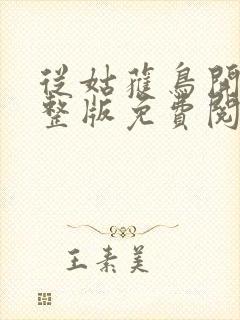 從姑蘿鳥開
整版免費閱
王素美